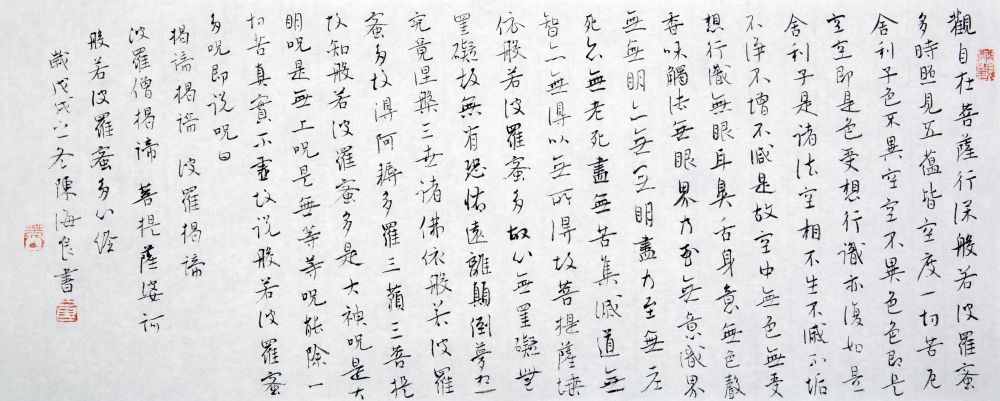 觀自在菩薩行深般若波羅蜜
多時照見五蘊皆空度一切苦厄
舍利子色不異空空不異色色即是
空空即是色受想行識亦復如是
舍利子是諸法空相不生不滅不垢
不淨不增不減是故空中無色無受
想行識無眼耳鼻舌身意無色聲
香味觸法無眼界乃至無意識界
無無明亦無無明盡乃至無老
死亦無老死盡無苦集滅道無
智亦無得以無所得故菩提薩埵
依般若波羅蜜多故心無罣礙無
罣礙故無有恐怖遠離顛倒夢想
究竟涅槃三世諸佛依般若波羅
蜜多故得阿耨多羅三藐三菩提
故知般若波羅蜜多是大神咒是大
明咒是無上咒是無等等咒能除一
切苦真實不虛故說般若波羅蜜
多咒即說咒曰
揭諦揭諦 波羅揭諦
波羅僧揭諦 菩提薩婆訶
般若波羅蜜多心經
歲戊戌之冬陳海良書